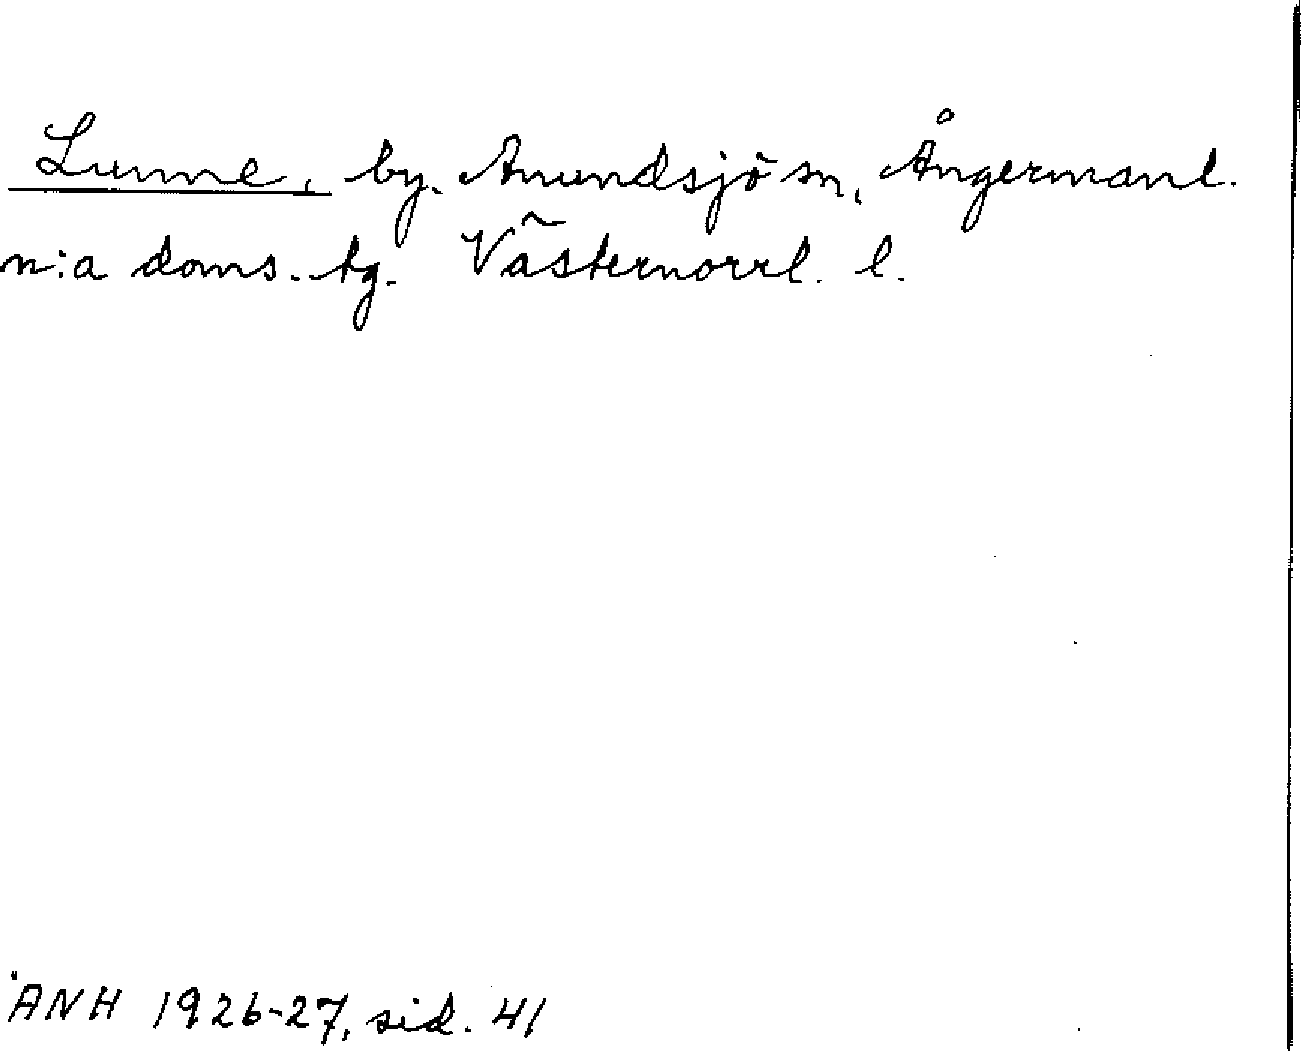 Lunne, by. Anundsjö sn, Ångermanl.
n:a doms. tg. Västernorrl. l.
ÅNH 1926-27, sid. 41